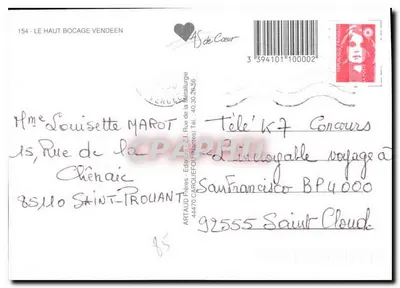 154 - LE HAUT BOCAGE VENDEEN
AS de Cœur
3 394101 100002
Mme Louisette MAROT
15, Rue de la
Chênaie
85110 SAINT-PROUANT
85
ARTAUD Frères - Editeurs, Rue de la Métallurgie
44470 CARQUEFOU (Nantes) Tél. 40.30
Télé K7 Concours
L'incroyable voyage à
San Francisco BP 4000
92555 Saint Cloud
CPAPHIL